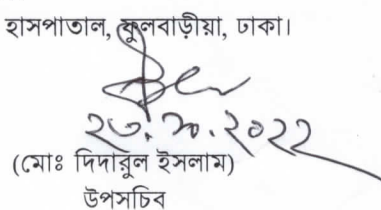 হাসপাতাল, ফুলবাড়ীয়া, ঢাকা।
২০২২
(মোঃ দিদারুল ইসলাম)
উপসচিব